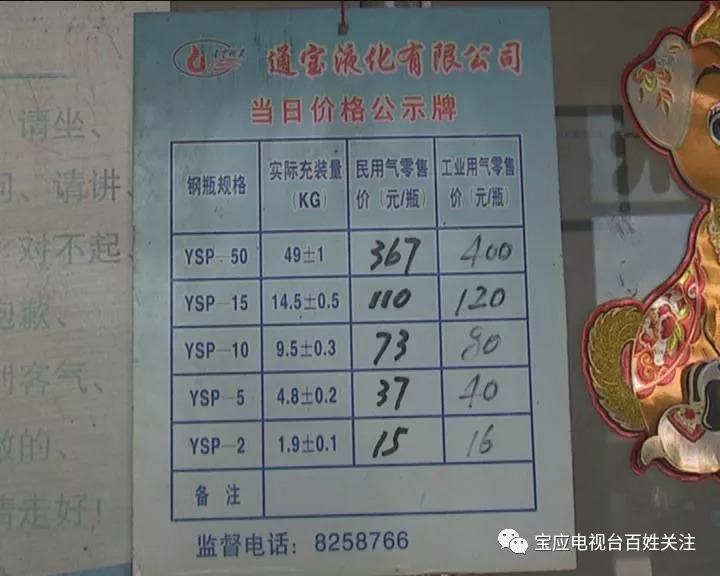 通宝液化有限公司
当日价格公示牌
钢瓶规格 实际充装量(KG) 民用气零售价(元/瓶) 工业用气零售价(元/瓶)
YSP-50 49±1 367 400
YSP-15 14.5±0.5 110 120
YSP-10 9.5±0.3 73 80
YSP-5 4.8±0.2 37 40
YSP-2 1.9±0.1 15 16
备注
监督电话：8258766
请坐、
请讲、
对不起、
抱歉、
客气、
的、
请走好!
宝应电视台百姓关注